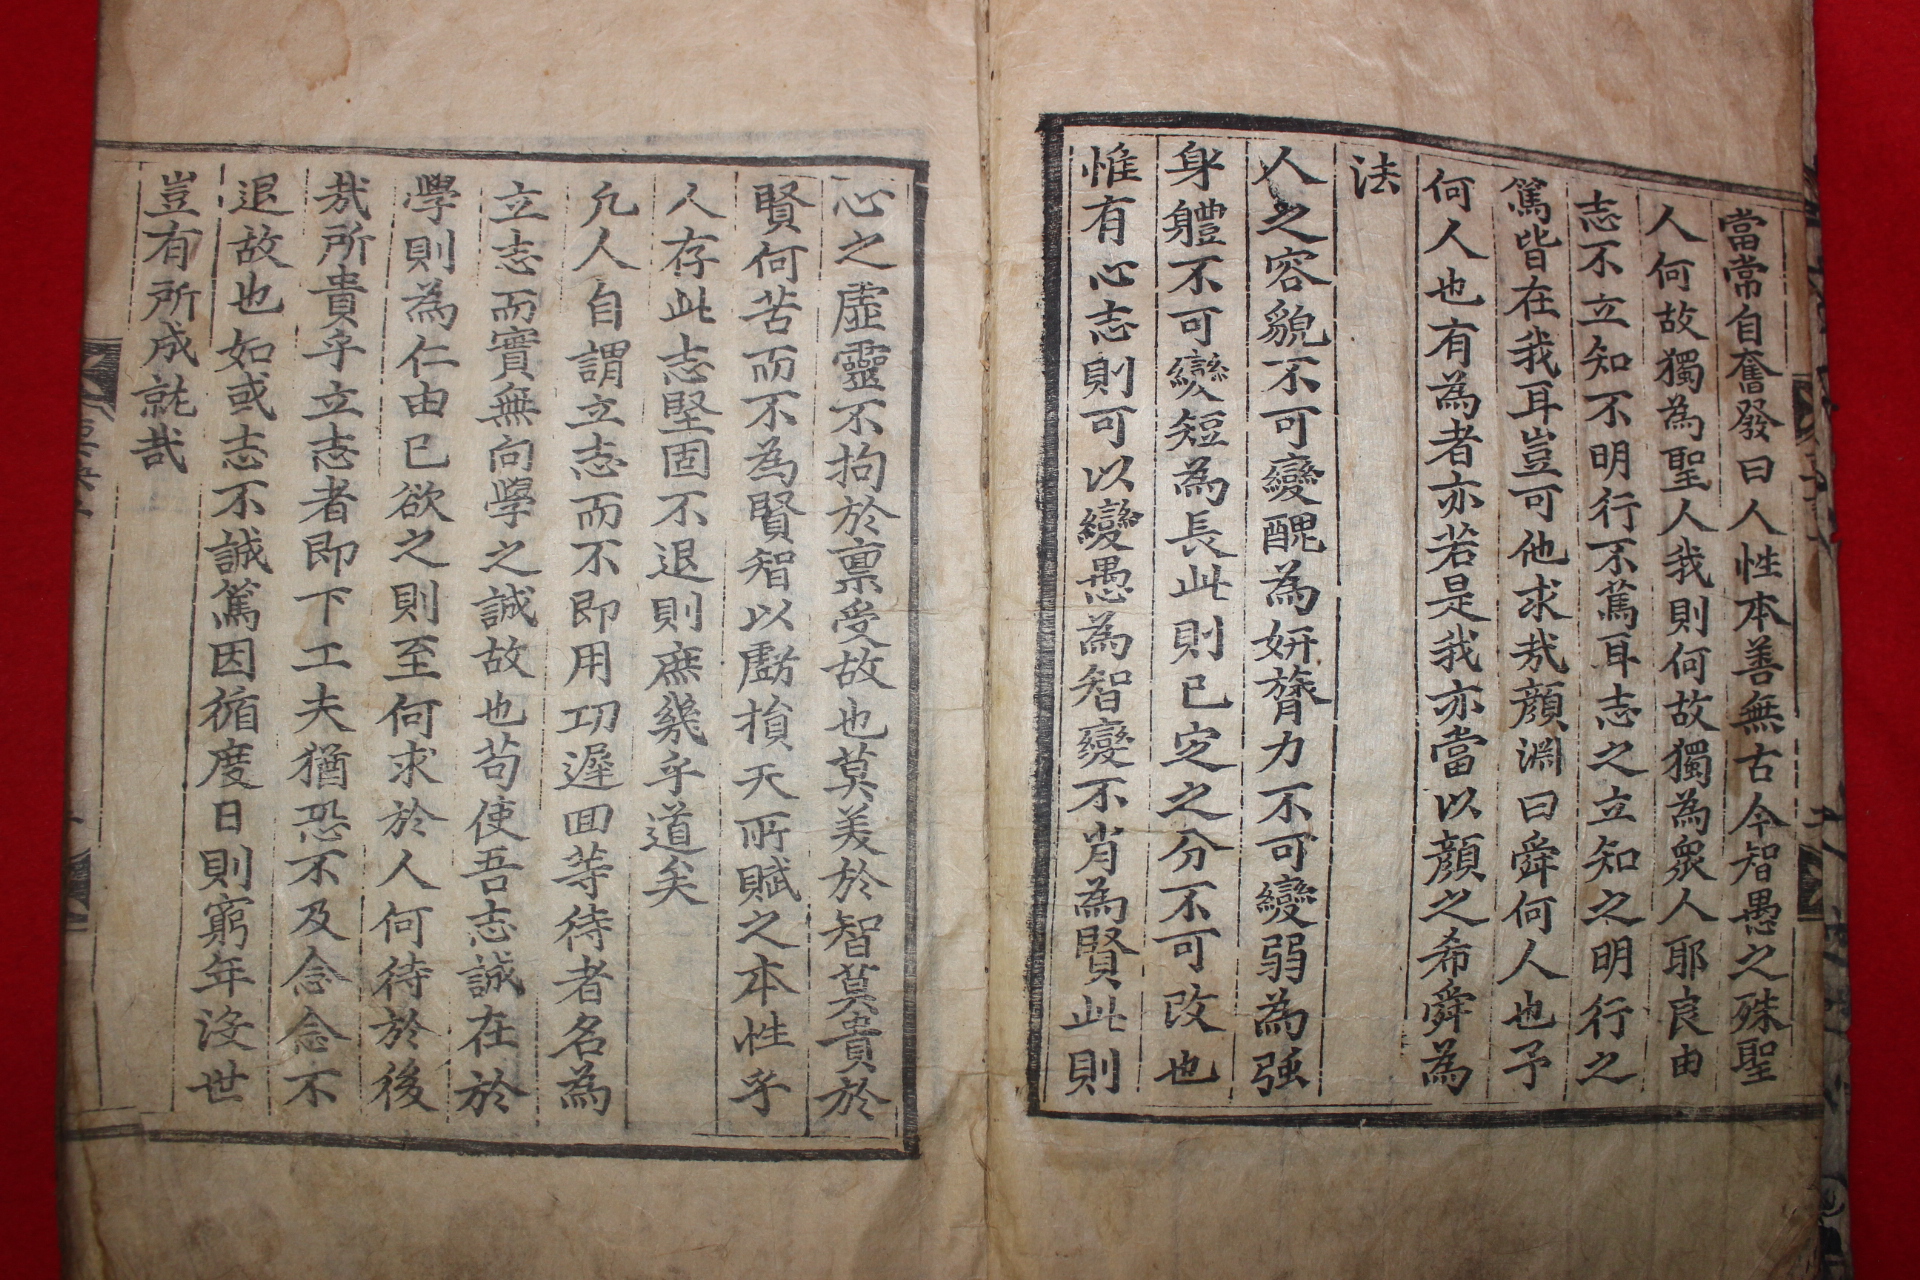 當常自奮發曰人性本善無古今智愚之殊聖
人何故獨為聖人我則何故獨為衆人耶良由
志不立知不明行不篤耳志之立知之明行之
篤皆在我耳豈可他求㢤顔淵曰舜何人也予
何人也有為者亦若是我亦當以顔之希舜為
法
人之容貌不可變醜為姸膂力不可變弱為強
身軆不可變短為長此則已定之分不可改也
惟有心志則可以變愚為智變不肖為賢此則
心之虛靈不拘於禀受故也莫美於智莫貴於
賢何苦而不為賢智以虧損天所賦之本性乎
人存此志堅固不退則庶幾乎道矣
凡人自謂立志而不即用功遲囬等待者名為
立志而實無向學之誠故也苟使吾志誠在於
學則為仁由已欲之則至何求於人何待於後
㢤所貴乎立志者即下工夫猶恐不及念念不
退故也如或志不誠篤因循度日則窮年沒世
豈有所成就哉